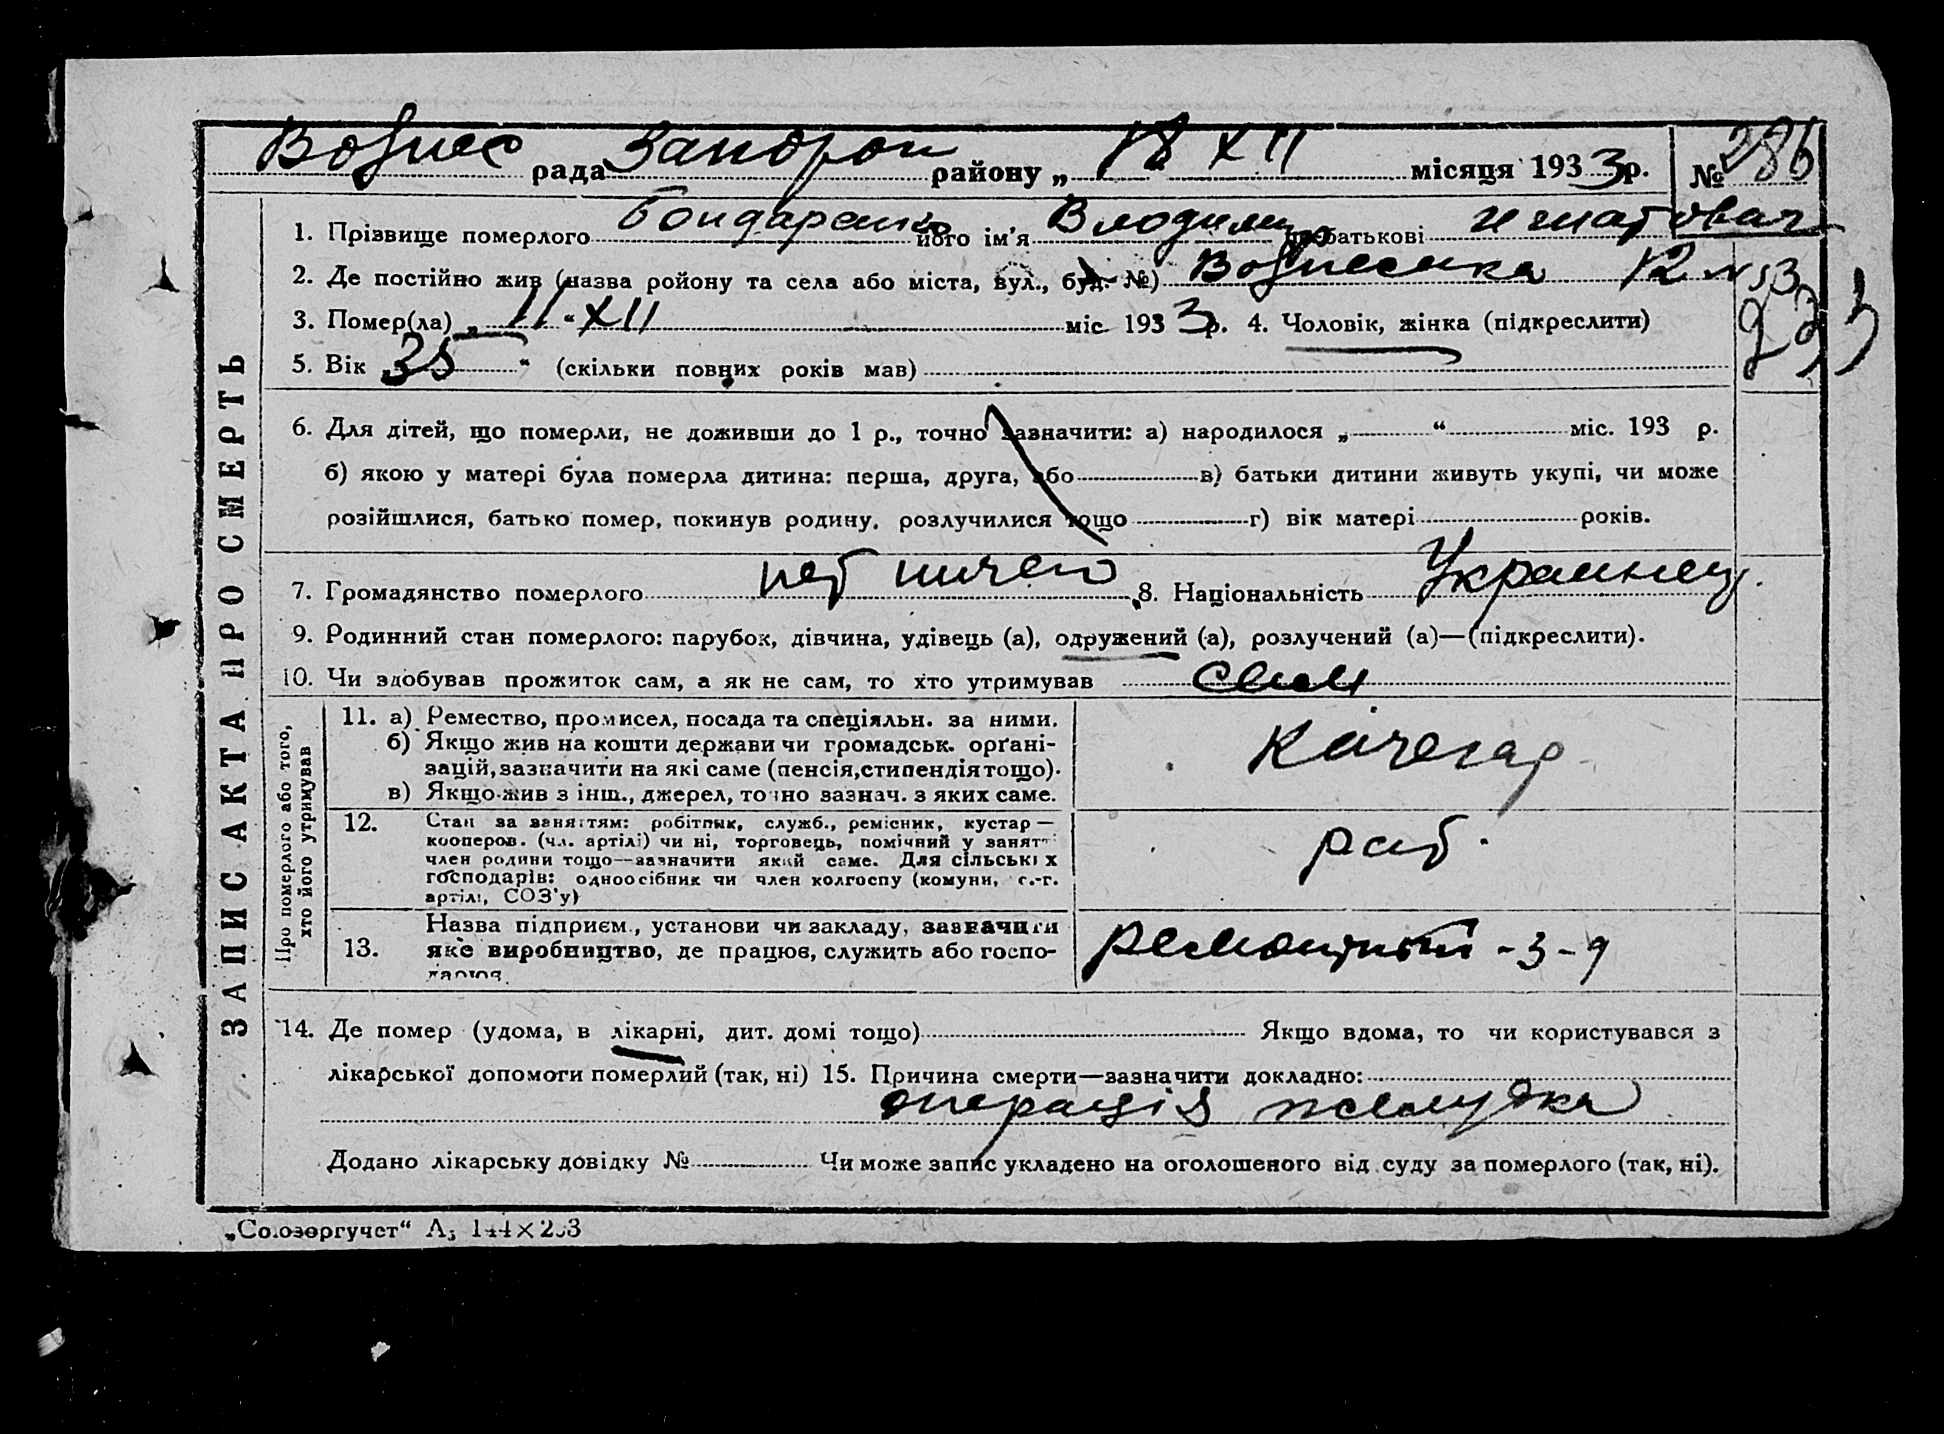 Вознес рада Запорож району „ 18 XII місяця 1933 р. № 286
1. Прізвище померлого Бондаренко його ім'я Володимир по батькові Игнатович
2. Де постійно жив (назва ройону та села або міста, вул., буд. №) Вознесенка 12 N 53
3. Помер(ла) „ 11 “ XII міс 1933 р. 4. Чоловік, жінка (підкреслити)
5. Вік „ 35 “ (скільки повних років мав)
6. Для дітей, що померли, не доживши до 1 р., точно зазначити: а) народилося „ “ міс. 193 р.
б) якою у матері була померла дитина: перша, друга, або в) батьки дитини живуть укупі, чи може
розійшлися, батько помер, покинув родину, розлучилися тощо г) вік матері років.
7. Громадянство померлого нет ничего 8. Національність Украинец
9. Родинний стан померлого: парубок, дівчина, удівець (а), одружений (а), розлучений (а)—(підкреслити).
10. Чи здобував прожиток сам, а як не сам, то хто утримував сам
ЗАПИС АКТА ПРО СМЕРТЬ
Про померлого або того,
хто його утримував
11. а) Ремество, промисел, посада та спеціяльн. за ними.
б) Якщо жив на кошти держави чи громадськ. орґані-
зацій, зазначити на які саме (пенсія, стипендія тощо).
в) Якщо жив з інш., джерел, точно зазнач. з яких саме.
Качегар
12. Стан за заняттям: робітник, служб., ремісник, кустар —
кооперов. (чл. артілі) чи ні, торговець, помічний у занятт
член родини тощо—зазначити який саме. Для сільських
господарів: одноосібник чи член колгоспу (комуни, с.-г.
артілі, СОЗ'у)
раб.
13. Назва підприєм., установи чи закладу, зазначити
яке виробництво, де працює, служить або госпо-
дарює
14. Де помер (удома, в лікарні, дит. домі тощо) Якщо вдома, то чи користувався з
лікарської допомоги померлий (так, ні) 15. Причина смерти—зазначити докладно:
операція желудка
Додано лікарську довідку № Чи може запис укладено на оголошеного від суду за померлого (так, ні).
„Союзоргучет“ А₅ 144×203